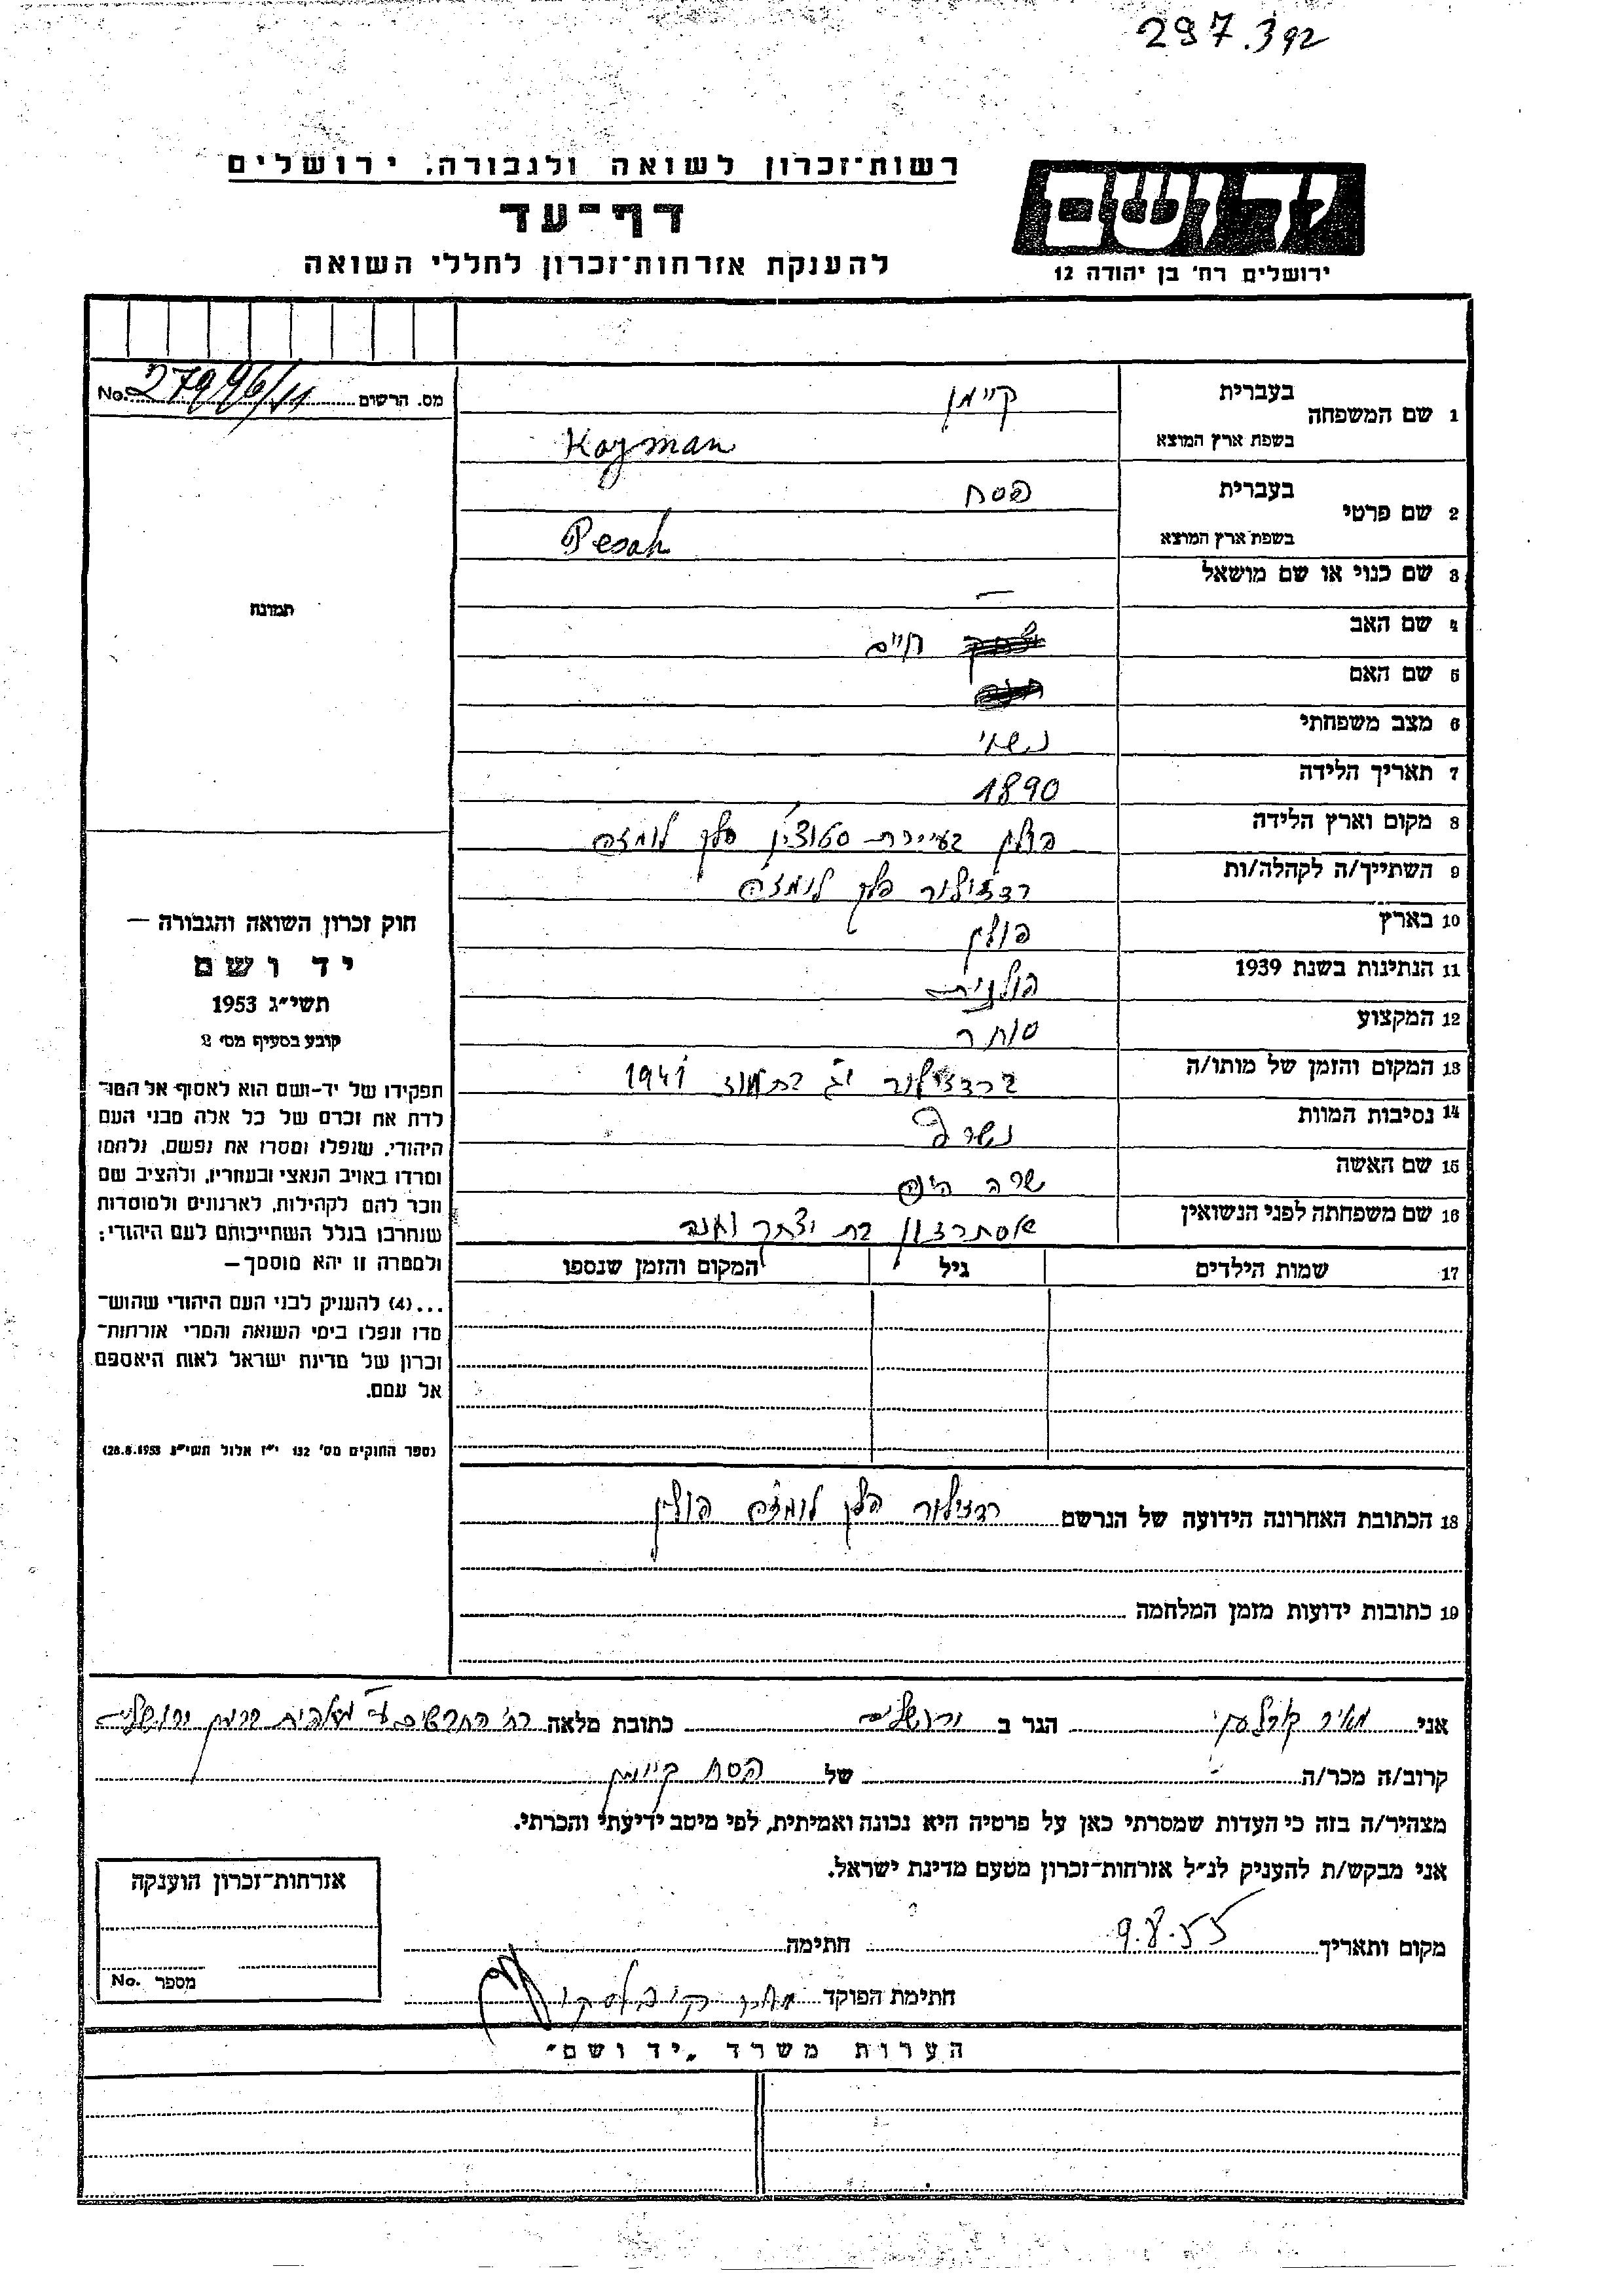 297.392
רשות־זכרון לשואה ולגבורה. ירושלים
יד ושם
דף־עד
ירושלים רח' בן יהודה 12
להענקת אזרחות־זכרון לחללי השואה
מס. הרשום No. 27996/11
1 שם המשפחה בעברית קיימן
בשפת ארץ המוצא Kayman
2 שם פרטי בעברית פסח
בשפת ארץ המוצא Pesah
3 שם כנוי או שם מושאל —
תמונה
4 שם האב חיים
5 שם האם
6 מצב משפחתי נשוי
7 תאריך הלידה 1890
8 מקום וארץ הלידה פולין בעיירת סטוצין פלך לומזה
9 השתייך/ה לקהלה/ות רדזילוב פלך לומזה
10 בארץ פולין
11 הנתינות בשנת 1939 פולנית
12 המקצוע סוחר
13 המקום והזמן של מותו/ה ברדזילוב י"ג בתמוז 1941
14 נסיבות המוות נשרף
15 שם האשה שרה
16 שם משפחתה לפני הנשואין בת יצחק
17 שמות הילדים גיל המקום והזמן שנספו
חוק זכרון השואה והגבורה —
יד ושם
תשי״ג 1953
קובע בסעיף מס׳ 2
תפקידו של יד־ושם הוא לאסוף אל המו־
לדת את זכרם של כל אלה מבני העם
היהודי, שנפלו ומסרו את נפשם, נלחמו
ומרדו באויב הנאצי ובעוזריו, ולהציב שם
וזכר להם לקהילות, לארגונים ולמוסדות
שנחרבו בגלל השתייכותם לעם היהודי;
ולמטרה זו יהא מוסמך—
...(4) להעניק לבני העם היהודי שהוש־
מדו ונפלו בימי השואה והמרי אזרחות־
זכרון של מדינת ישראל לאות היאספם
אל עמם.
(ספר החוקים מס׳ 132 י״ז אלול תשי״ג 28.8.1953)
18 הכתובת האחרונה הידועה של הנרשם רדזילוב פלך לומזה פולין
19 כתובות ידועות מזמן המלחמה
אני מאיר הגר ב ירושלים כתובת מלאה רח' ירושלים
קרוב/ה מכר/ה של פסח קיימן
מצהיר/ה בזה כי העדות שמסרתי כאן על פרטיה היא נכונה ואמיתית, לפי מיטב ידיעתי והכרתי.
אני מבקש/ת להעניק לנ״ל אזרחות־זכרון מטעם מדינת ישראל.
מקום ותאריך 9.8.55 חתימה
חתימת הפוקד
אזרחות־זכרון הוענקה
מספר No.
הערות משרד „יד ושם״